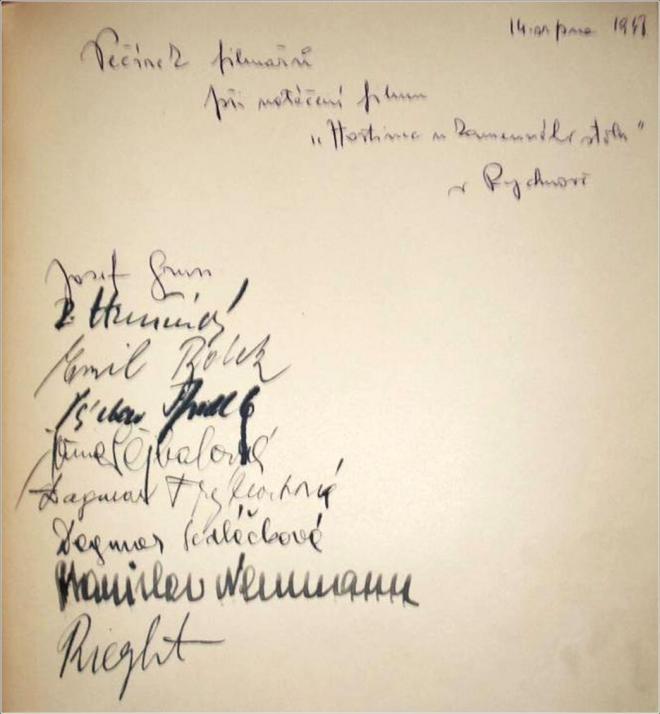 14. srpna 1948
Večírek filmařů
při natáčení filmu
„Hostina u kamenného stolu"
v Rychnově
Josef Gruss
Emil Bolek
Václav
Dagmar
Dagmar Sedláčková
Stanislav Neumann
Rieght